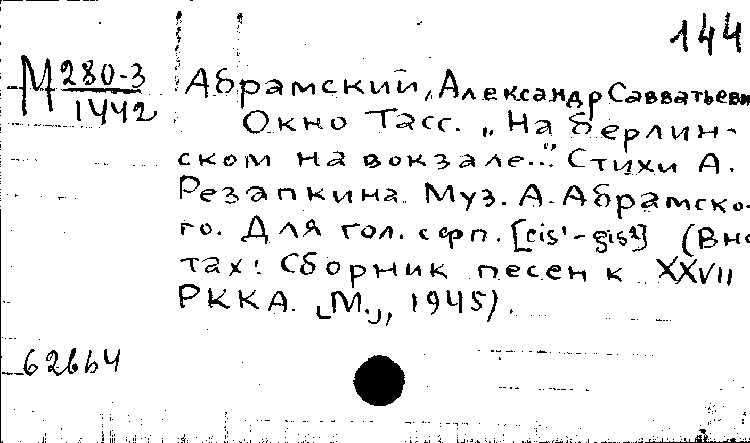 144
М 280-3
1442
Абрамский, Александр Савватьеви
Окно Тасс. „На берлин-
ском на вокзале..." Стихи А.
Резапкина. Муз. А. Абрамско-
го. Для гол. с фп. [cis¹-gis²] (В но
тах: Сборник песен к XXVII
РККА. [М.], 1945).